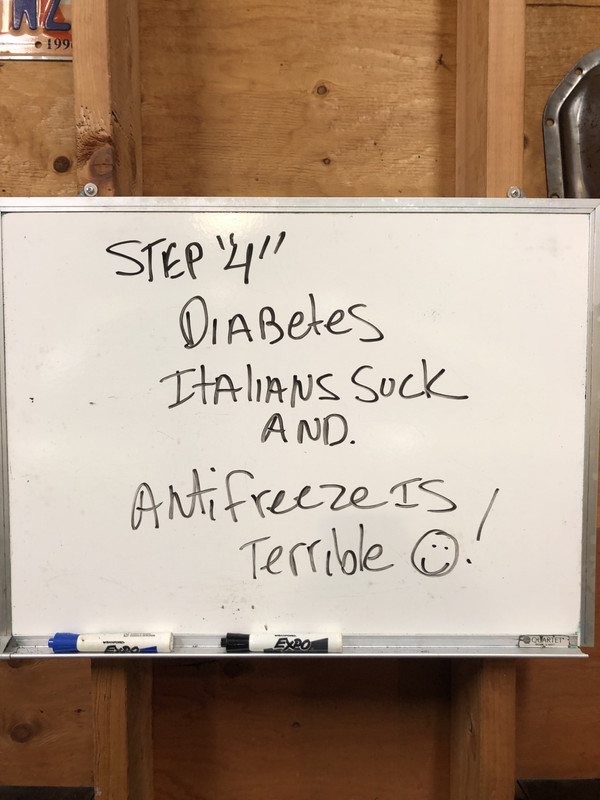 1998
STEP "4"
DIABetes
ItALIANS SUCK
AND.
ANtifreeze IS
Terrible ☺!
EXPO
EXPO
QUARTET